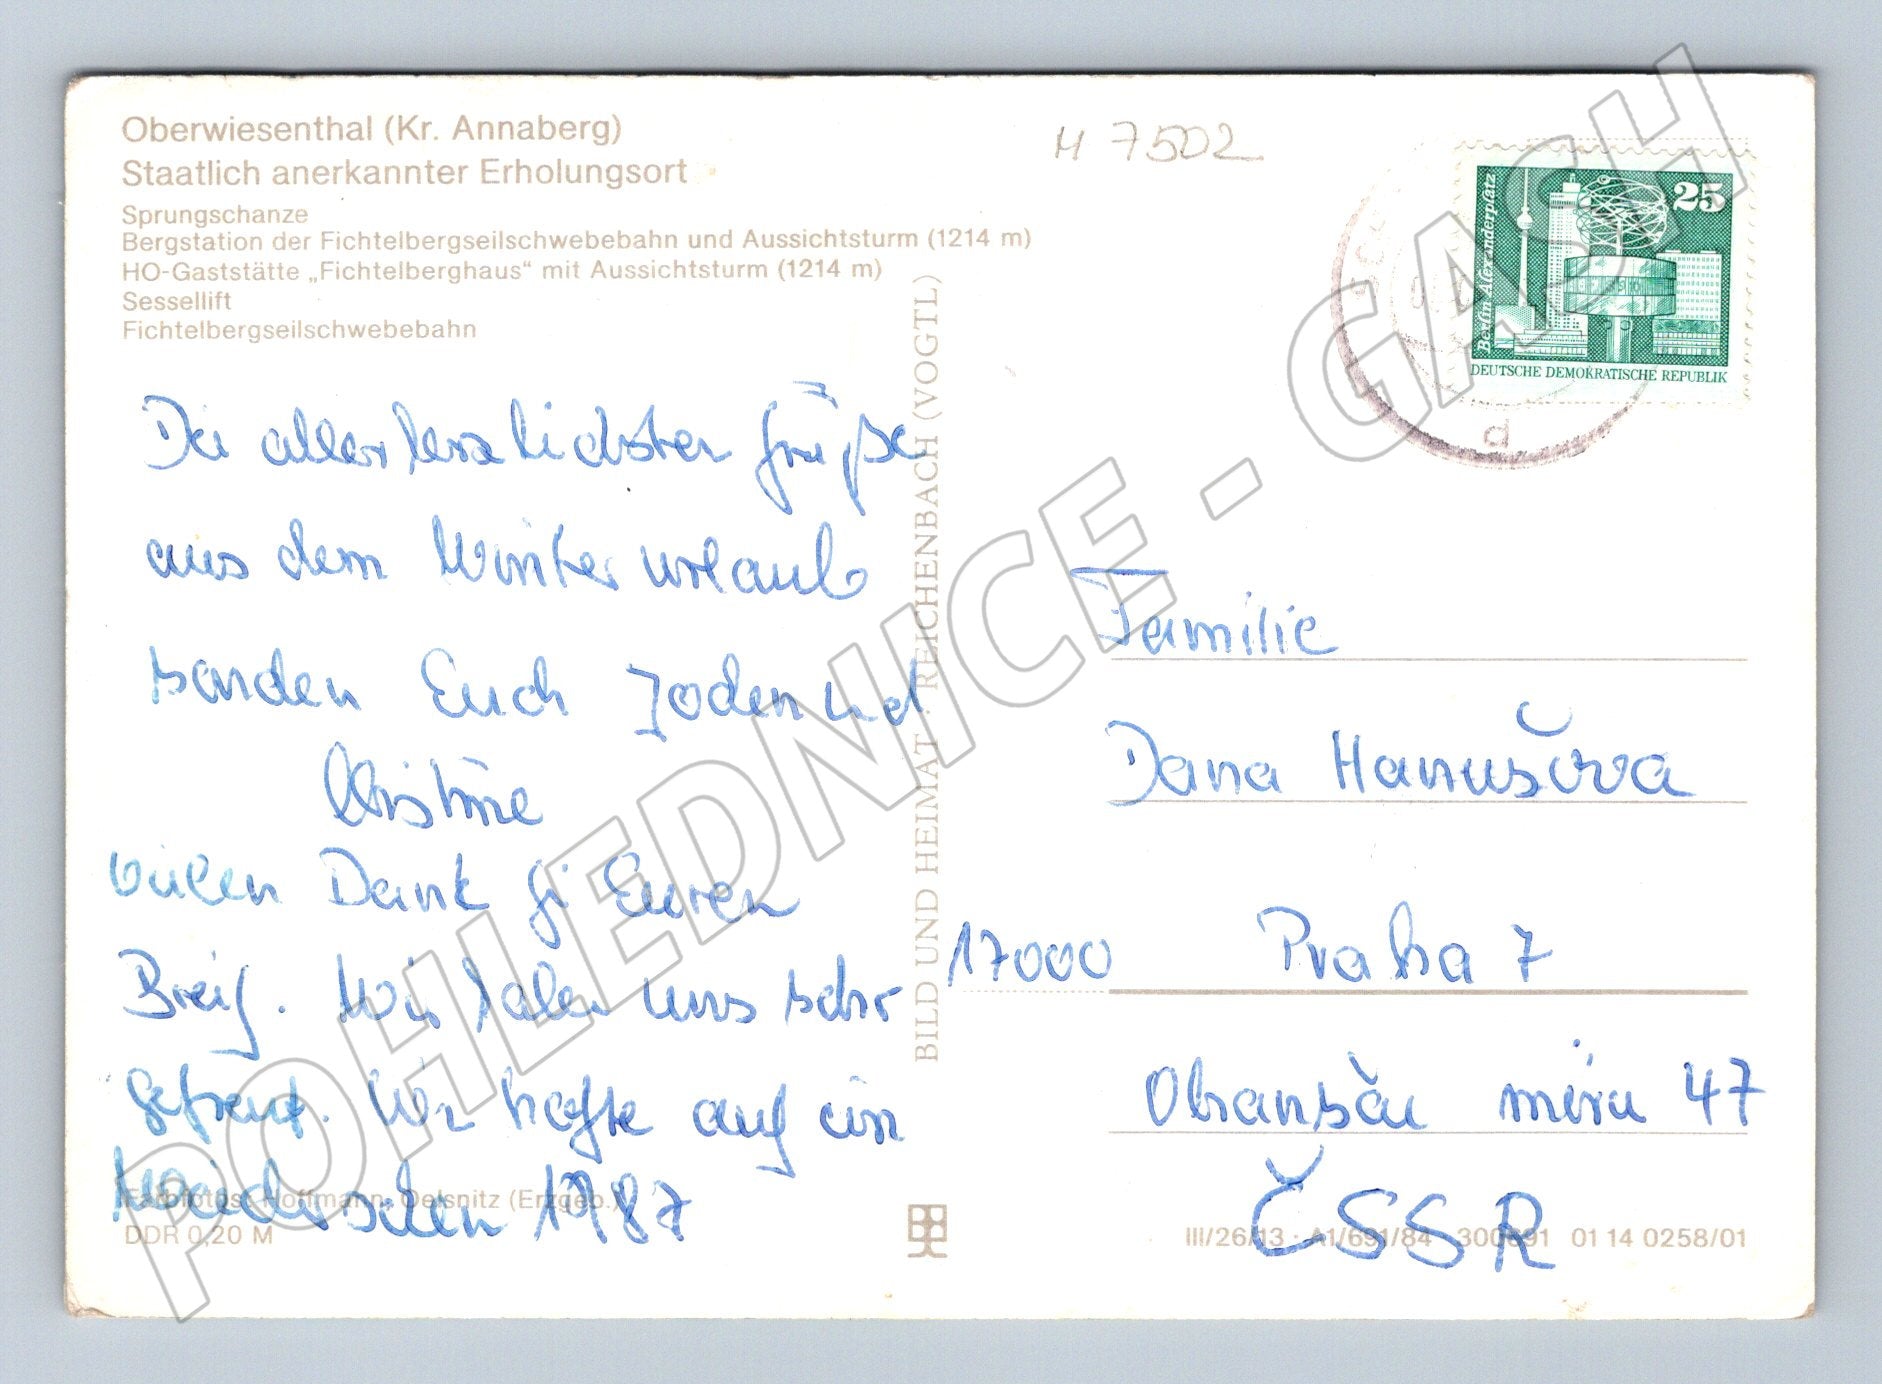 Oberwiesenthal (Kr. Annaberg)
Staatlich anerkannter Erholungsort
Sprungschanze
Bergstation der Fichtelbergseilschwebebahn und Aussichtsturm (1214 m)
HO-Gaststätte „Fichtelberghaus" mit Aussichtsturm (1214 m)
Sessellift
Fichtelbergseilschwebebahn
Die allerherzlichsten Grüße
aus dem Winterurlaub
senden Euch und
vielen Dank für Euren
Brief. Wir haben uns sehr
gefreut. Wir hoffe auf ein
1987
Farbfotos: Hoffmann, Oelsnitz (Erzgeb.)
DDR 0,20 M
BILD UND HEIMAT · REICHENBACH (VOGTL)
H 7502
25
Berlin Alexanderplatz
DEUTSCHE DEMOKRATISCHE REPUBLIK
d
Familie
Dana Hanušova
17000 Praha 7
míru 47
ČSSR
III/26/13 · A1/691/84 300691 01 14 0258/01
POHLEDNICE - GASH